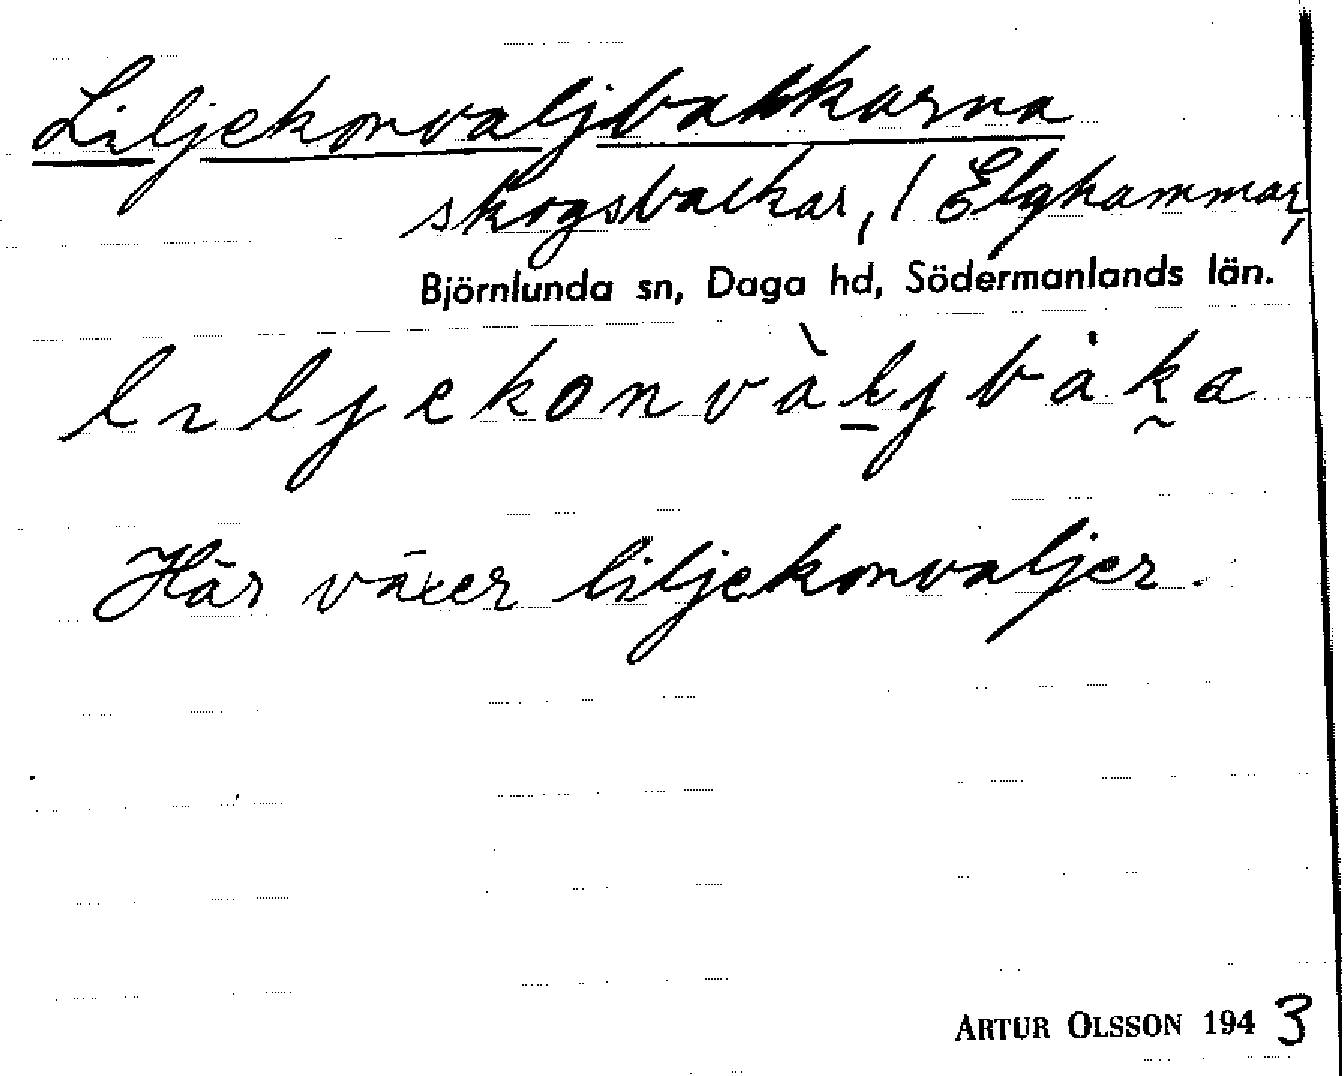 Liljekonvaljbackarna
skogsbackar, / Elghammar,
Björnlunda sn, Daga hd, Södermanlands län.
liljekonvàl̲jbȧk̰a
Här växer liljekonvaljer.
ARTUR OLSSON 1943